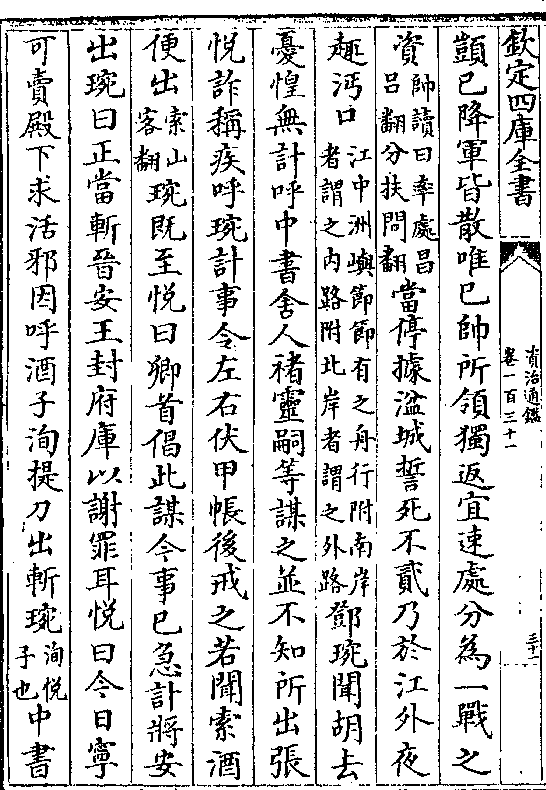 欽定四庫全書
資治通鑑
卷一百三十一
三十二
顗已降軍皆散唯已帥所領獨返宜速處分為一戰之
資帥讀曰率處昌呂翻分扶問翻當停據湓城誓死不貳乃於江外夜
趣沔口江中洲嶼節節有之舟行附南岸者謂之內路附北岸者謂之外路鄧琬聞胡去
憂惶無計呼中書舍人禇靈嗣等謀之並不知所出張
悅詐稱疾呼琬計事令左右伏甲帳後戒之若聞索酒
便出索山客翻琬既至悅曰卿首倡此謀今事已急計將安
出琬曰正當斬晉安王封府庫以謝罪耳悅曰今日寧
可賣殿下求活邪因呼酒子洵提刀出斬琬洵悅子也中書